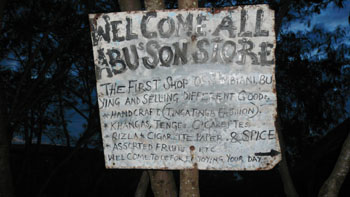 WELCOME ALL
ABU'SON STORE
THE FIRST SHOP BU-
YING AND SELLING DIFFERENT GOODS
HANDCRAFT (TINGATINGA
KHANGAS, TENGE, CIGARETTES
RIZLA CIGARETTE PAPER & SPICE
ASSORTED FRUITS ETC
WELCOME YOUR DAY